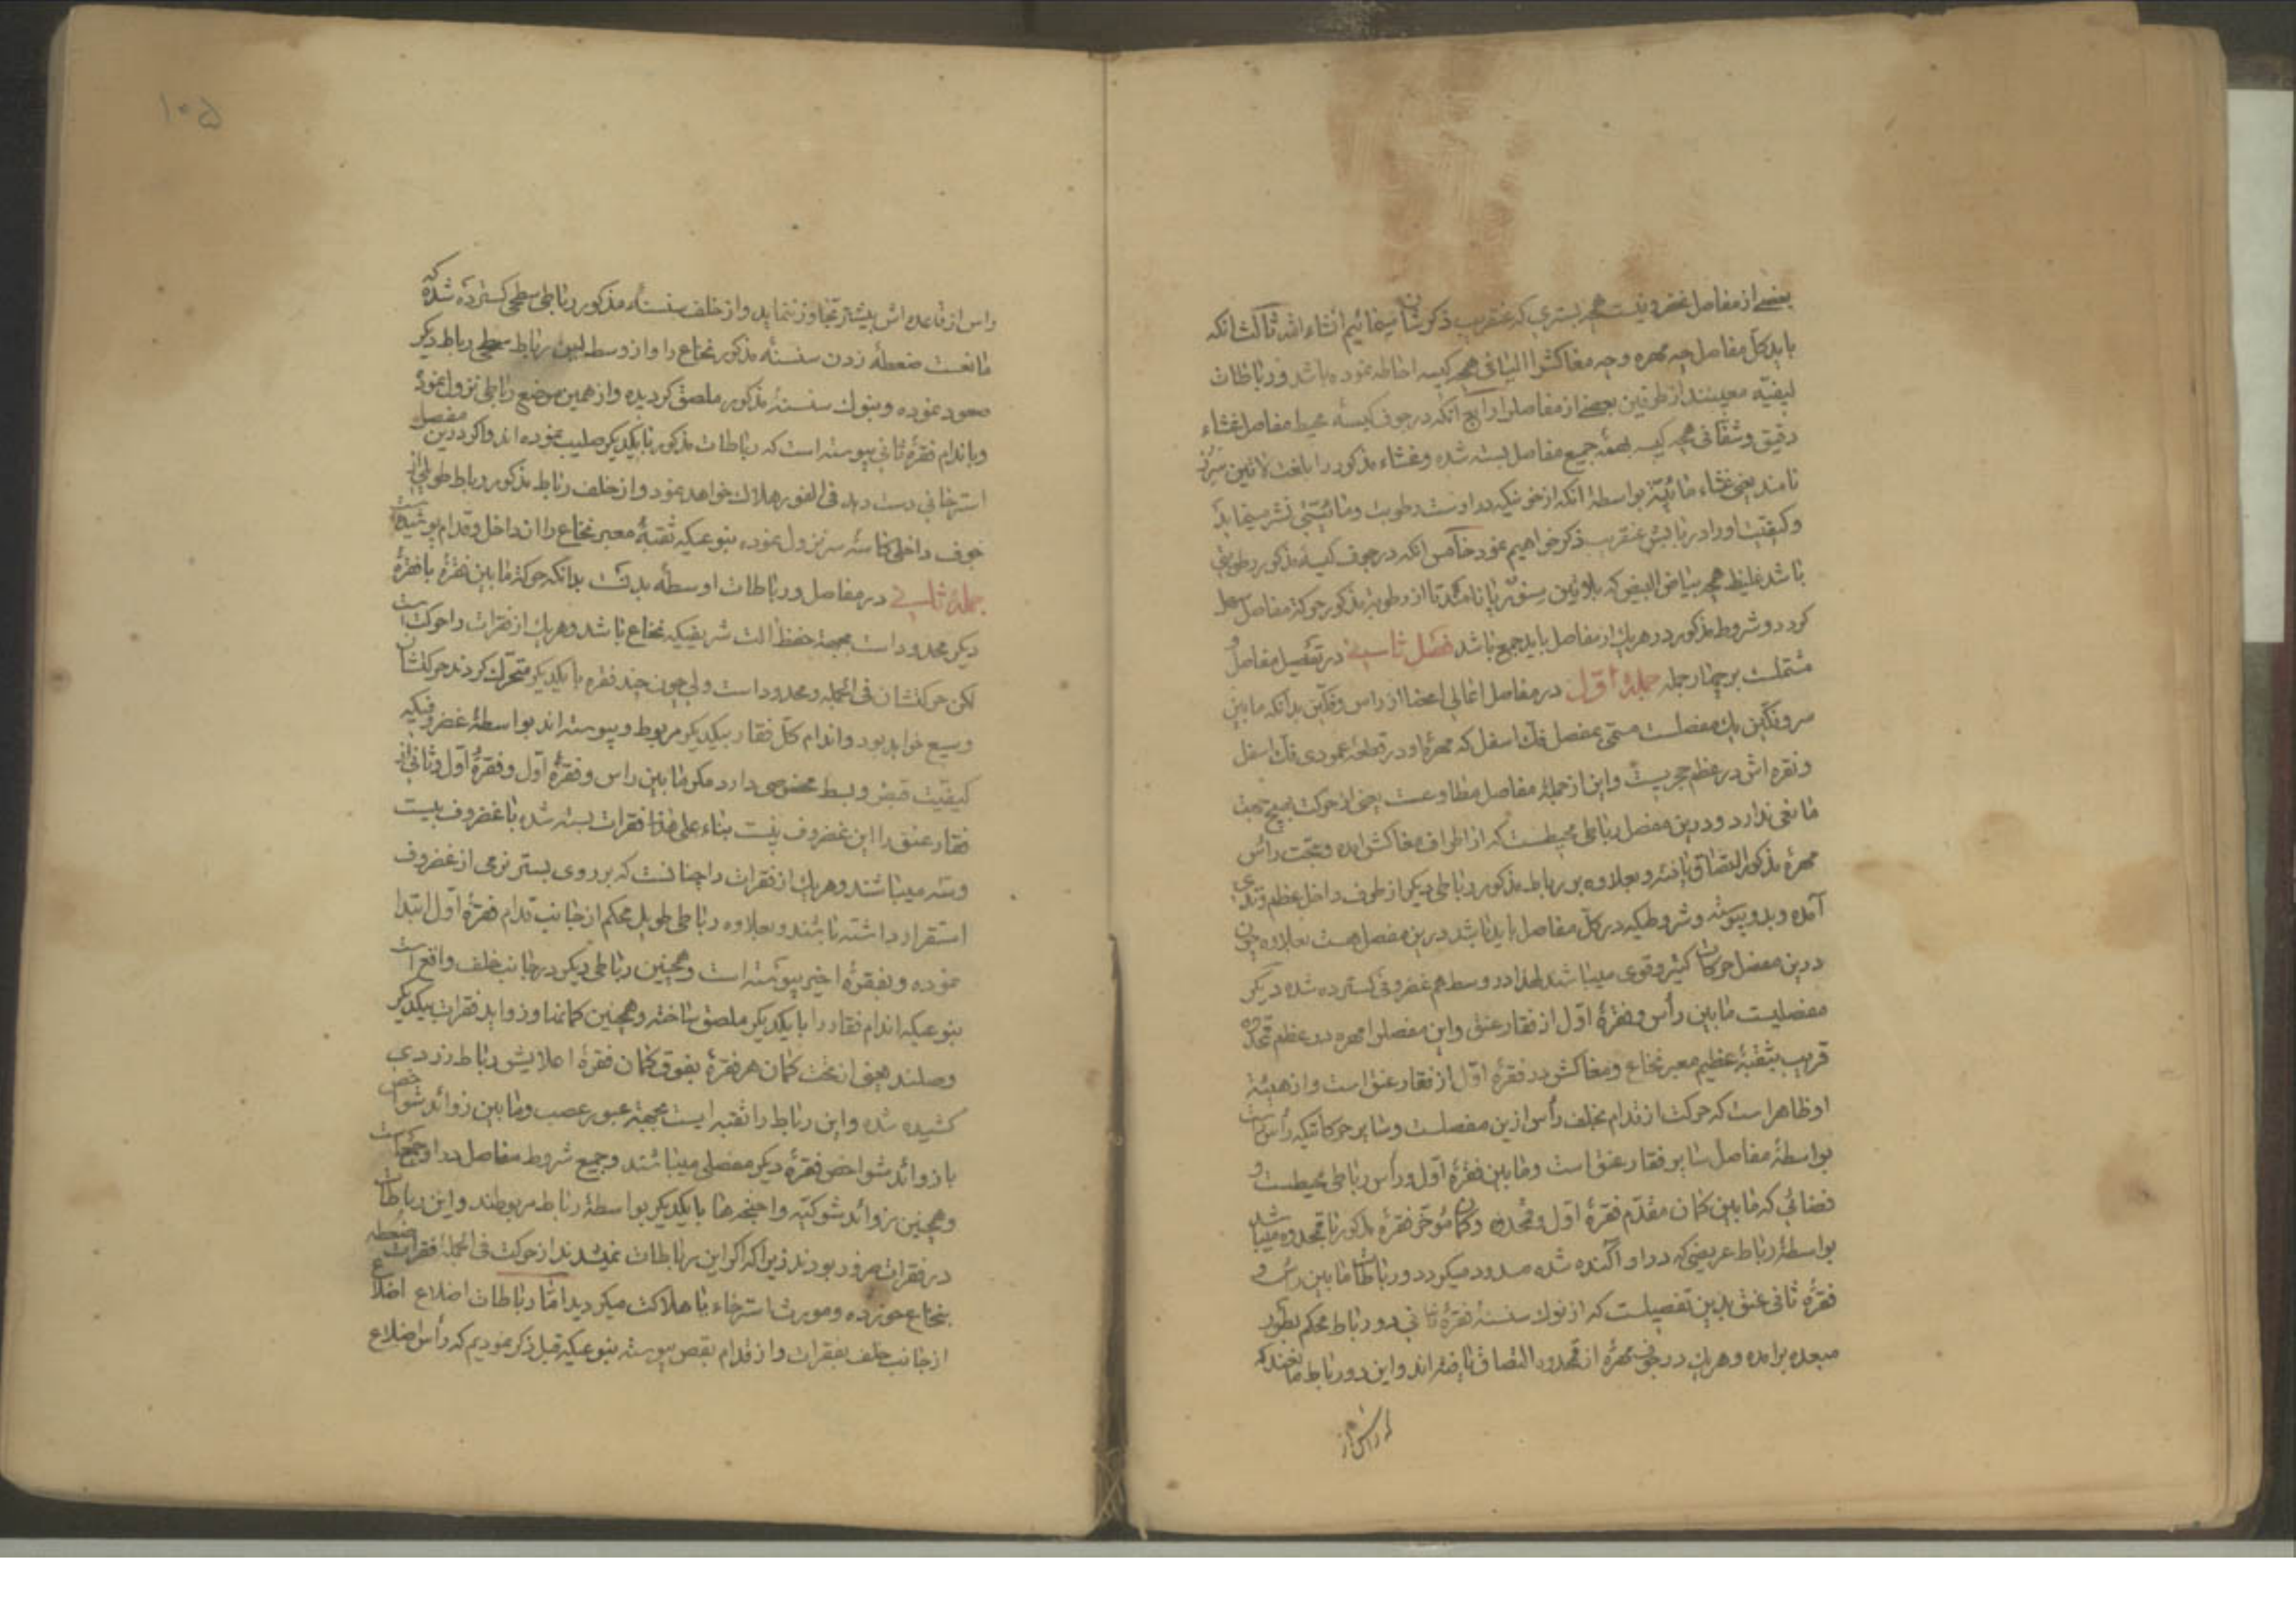 بعضی از مفاصل غضروفیست همچه بستری که عنقریب ذکرشان مینمائیم انشاء الله ثالث انکه
باید کل مفاصل چه مهره و چه مغاکش را الیافی همچه کیسه احاطه نموده باشد و رباطات
لیفیّه معیینند از طرفین بعضی از مفاصل را رابع انکه در جوف کیسهٔ محیط مفاصل غشاء
دقیق و شفافی همچه کیسه بهمهٔ جمیع مفاصل بسته شده و غشاء مذکور را بلغت لاتین
نامند یعنی غشاء مائیّه بواسطهٔ انکه از خونیکه در اوست رطوبت و مائیتی نشر مینماید
و کیفیّت او را در بابش عنقریب ذکر خواهیم نمود خامس انکه در جوف کیسهٔ مذکور رطوبتی
باشد غلیظ همچه بیاض البیض که بلاتین نامند تا از رطوبة مذکور حرکة مفاصل سهل
کردد و شروط مذکور در هریك از مفاصل باید جمع باشد فصل ثانی در تفصیل مفاصل و
مشتملست بر چهار جمله جملهٔ اول در مفاصل اعالی اعضا از راس و فکّین بدانکه مابین
سر و فکّین یك مفصلست مسمّی بمفصل فك اسفل که مهرهٔ او در قطعهٔ عمودی فك اسفل
و نقره اش در عظم حجریست و این از جملهٔ مفاصل مطاوعست یعنی از حرکت بهیچ جهت
مانعی ندارد و درین مفصل رباطی محیطست که از اطراف مغاکش امده و بتحت رأس
مهرهٔ مذکور التصاق یافته و بعلاوه بر رباط مذکور رباطی دیکر از طرف داخل عظم وتدی
آمده و بدو پیوسته و شروطیکه در کل مفاصل باید باشد درین مفصل هست بعلاوه چون
درین مفصل حرکات کثیر و قوی میباشند لهذا در وسط هم غضروفی کسترده شده دیکر
مفصلیست مابین رأس و فقرهٔ اوّل از فقار عنق و این مفصل را مهره در عظم قمحدوه
قریب بثقبهٔ عظیم معبر نخاع و مغاکش در فقرهٔ اوّل از فقار عنق است و از هیئة
او ظاهر است که حرکت از قدام بخلف رأس ازین مفصلست و سایر حرکاتیکه رأس راست
بواسطهٔ مفاصل سایر فقار عنق است و مابین فقرهٔ اوّل و رأس رباطی محیطست و
فضائی که مابین کمان مقدّم فقرهٔ اوّل و قمحدوه و کمان مؤخر فقرهٔ مذکور با قمحدوه میباشد
بواسطهٔ رباط عریضی که در او آکنده شده مسدود میکردد و رباطات مابین راس و
فقرهٔ ثانی عنق بدین تفصیلست که از نوك سنسنهٔ فقرهٔ ثانی دو رباط محکم بطور
صعده برامده و هریك در مهره از قمحدوه التصاق یافته اند و این دو رباط مانعند که
که راس از
۱۰۵
راس از قاعده اش بیشتر تجاوز ننماید و از خلف سنسنهٔ مذکور رباطی سطحی کسترده شده که
مانعست ضغطهٔ زدن سنسنهٔ مذکور نخاع را و از وسط این رباط سطحی رباط دیکر
صعود نموده و بنوك سنسنهٔ مذکور ملصق کردیده و از همین موضع رباطی نزول نموده
و باندام فقرهٔ ثانی پیوسته است که رباطات مذکور با یکدیکر صلیب نموده اند و اکر درین مفصل
استرخائی دست دهد فی الفور هلاك خواهد نمود و از خلف رباط مذکور رباط طویلی از
جوف داخلی کاسهٔ سر نزول نموده بنوعیکه ثقبهٔ معبر نخاع را از داخل و قدام پوشیده است
جملهٔ ثانی در مفاصل و رباطات اوسطهٔ بدنست بدانکه حرکة مابین فقرهٔ با فقرهٔ
دیکر محدود است بجهة حفظ الت شریفیکه نخاع باشد و هریك از فقرات را حرکت است
لکن حرکتشان فی الجمله و محدود است ولی چون چند فقره با یکدیکر متحرك کردند حرکتشان
وسیع خواهد بود و اندام کل فقار بیکدیکر مربوط و پیوسته اند بواسطهٔ غضروفیکه
کیفیّت قبض و بسط مخصوصی دارد مکر مابین راس و فقرهٔ اوّل و فقرهٔ اوّل و ثانی از
فقار عنق را این غضروف نیست بناء علی هذا فقرات بسته شده با غضروف بیست
و سه میباشند و هریك از فقرات را چنانست که بر روی بستر نرمی از غضروف
استقرار داشته باشند و بعلاوه رباطی طویل محکم از جانب قدام فقرهٔ اوّل ابتدا
نموده و بفقرهٔ اخیر پیوسته است و همچنین رباطی دیکر در جانب خلف واقع است
بنوعیکه اندام فقار را با یکدیکر ملصق ساخته و همچنین کمانها و زواید فقرات بیکدیکر
وصلند یعنی از تحت کمان هر فقرهٔ بفوق کمان فقرهٔ اعلایش رباط زردی
کشیده شده و این رباط را ثقبه ایست بجهة عبور عصب و مابین زوائد شواخص
با زوائد شواخص فقرهٔ دیکر مفصلی میباشند و جمیع شروط مفاصل در او جمع است
و همچنین زوائد شوکیّه و اجنحه ها با یکدیکر بواسطهٔ رباط مربوطند و این رباطات
در فقرات ضرور بودند زیرا که اکر این رباطات نمیشدند از حرکت فی الجملهٔ فقرات ضغطه
بنخاع خورده و مورث استرخاء یا هلاکت میکردید امّا رباطات اضلاع اضلاع
از جانب خلف بفقرات و از قدام بقص پیوسته بنوعیکه قبل ذکر نمودیم که رأس اضلاع